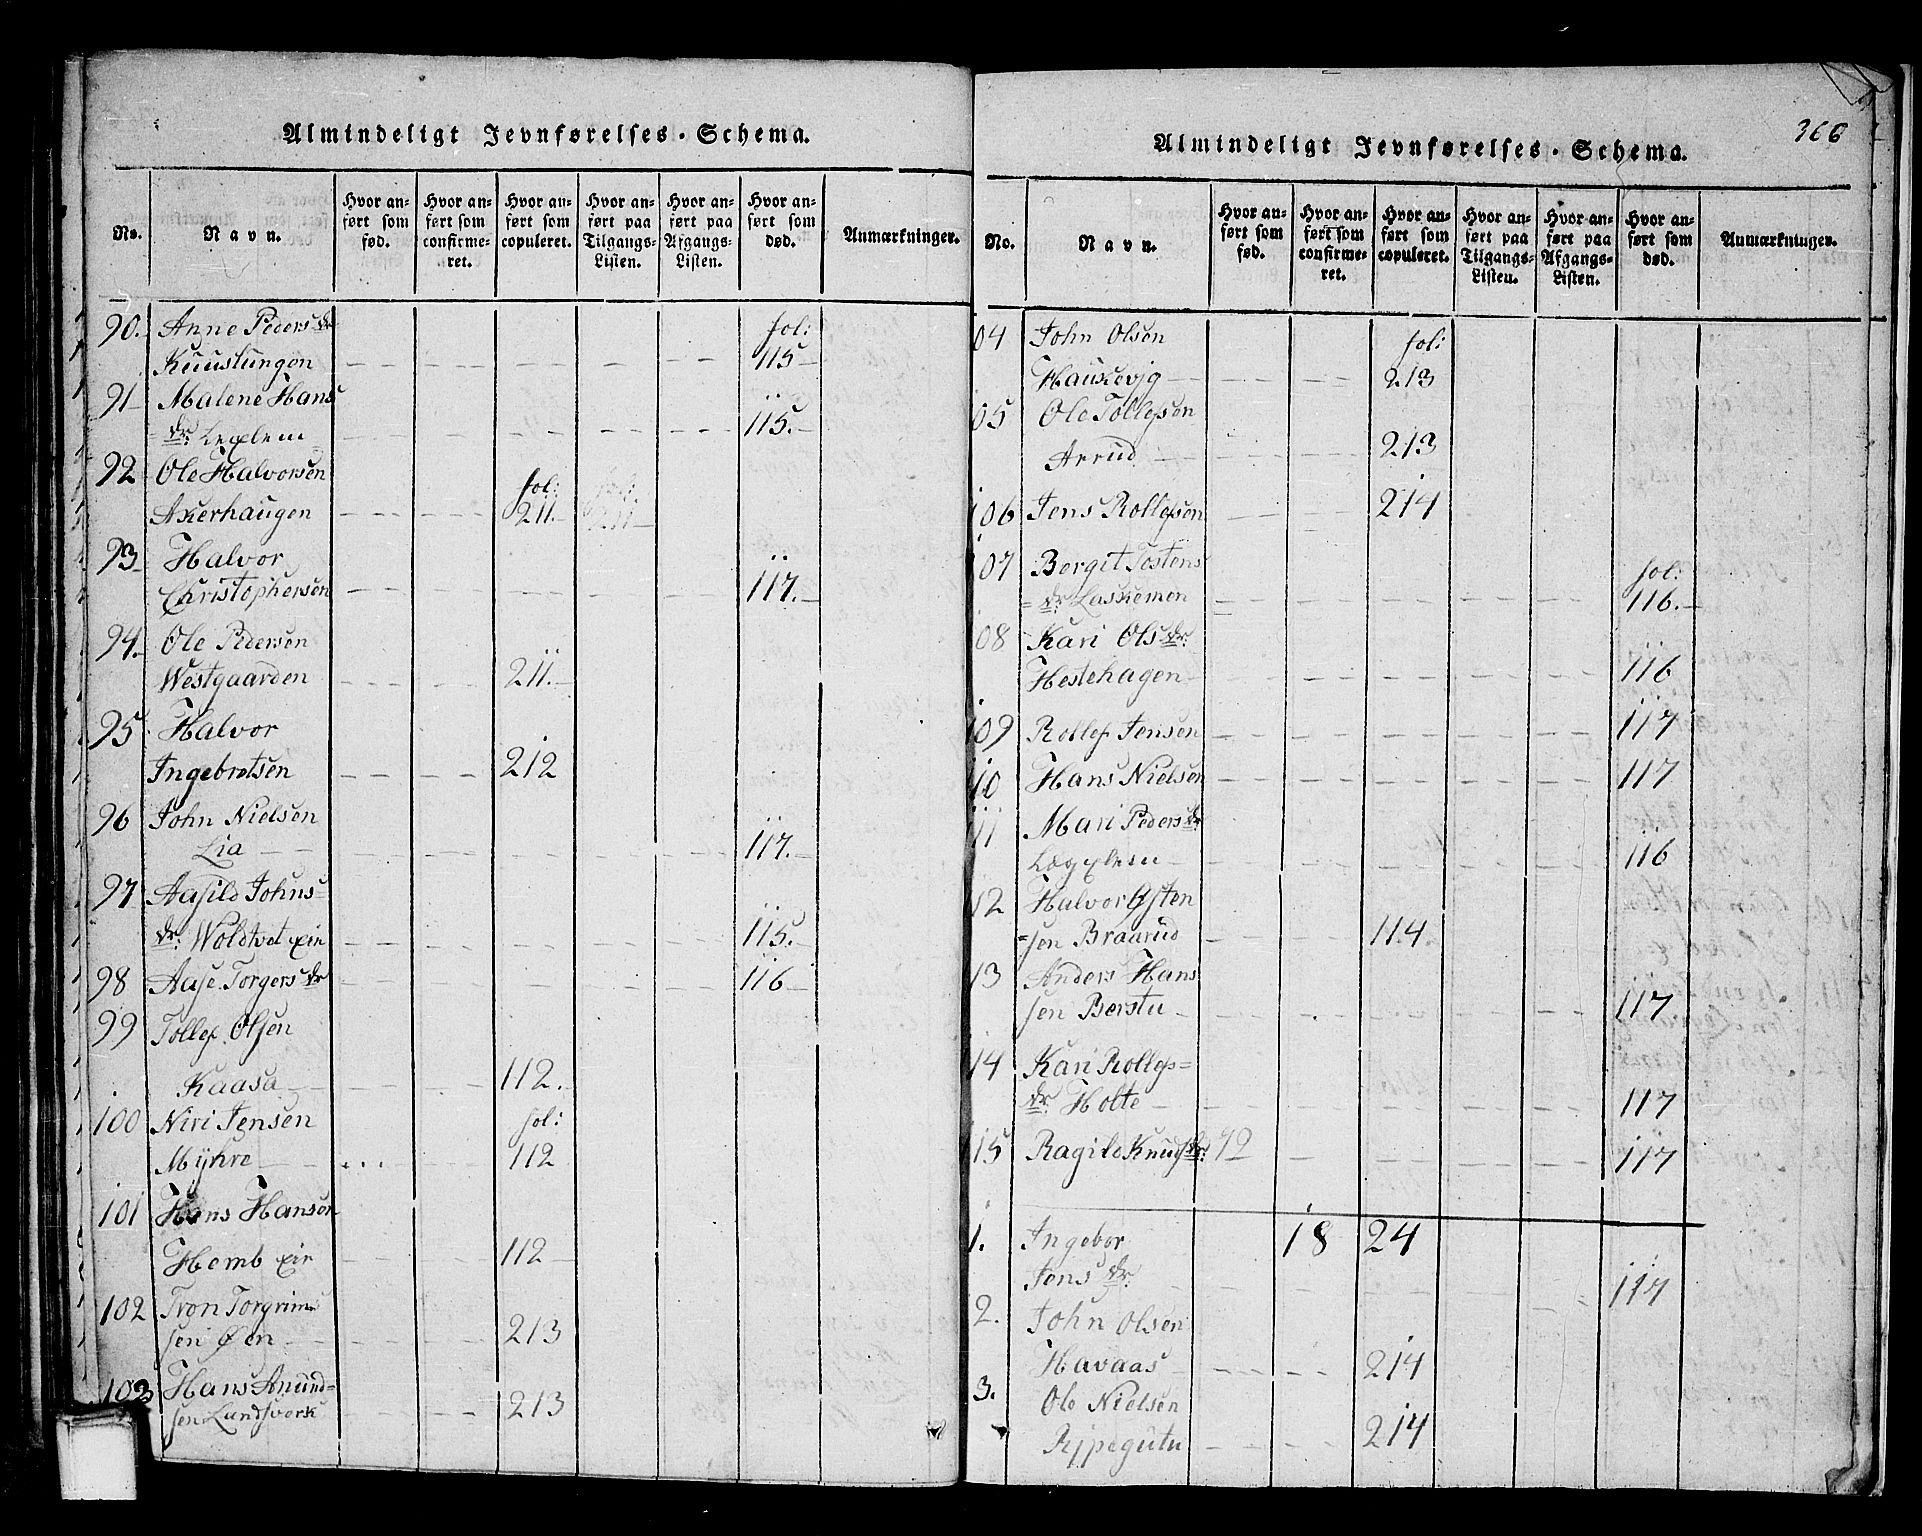 Almindeligt Jevnførelses-Schema.
No.
Navn.
Hvor anført som fød.
Hvor anført som confirmeret.
Hvor anført som copuleret.
Hvor anført paa Tilgangs-Listen.
Hvor anført paa Afgangs-Listen.
Hvor anført som død.
Anmærkninger.
90. Anne Peders dr fol:
115
91 Malene Hans
dr. 115.
92 Ole Halvorsen fol:
Akerhaugen 211.
93 Halvor
Christophersen 117.
94. Ole Pedersen
Westgaarden 211.
95 Halvor
Ingebretsen 212
96 John Nielsen
Lia 117.
97 Aasild Johns=
dr. Woldtvet 115.
98 Aase Torgers dr 116
99 Tollef Olsen
Kaasa 112.
100 Niri Jensen fol:
Myhre 112
101 Hans Hansen
Hemb 112
102 Tron Torgrim
sen Øen 213
103 Hans Amund=
sen Lundsverk 213
Almindeligt Jevnførelses-Schema.
366
No.
Navn.
Hvor anført som fød.
Hvor anført som confirmeret.
Hvor anført som copuleret.
Hvor anført paa Tilgangs-Listen.
Hvor anført paa Afgangs-Listen.
Hvor anført som død.
Anmærkninger.
04 John Olsen fol:
Haukevig 213
05 Ole Tollefsen
Aarud 213
106 Jens Rollefsen 214
107 Bergit Tostens fol:
=dr. 116.
08 Kari Ols dr.
Hestehagen 116
109 Rollef Jensen 117
10 Hans Nielsen 117
11 Mari Peders dr
116
12 Halvor Østen
=sen Braarud 114
13 Anders Hans
sen Berstu 117
14 Kari Rollefs=
dr. Holte 117
15 Ragild Knuds dr. 92 117
1. Ingebor 18 24
Jens dr. 117
2. John Olsen
Havaas 214
3. Ole Nielsen
214